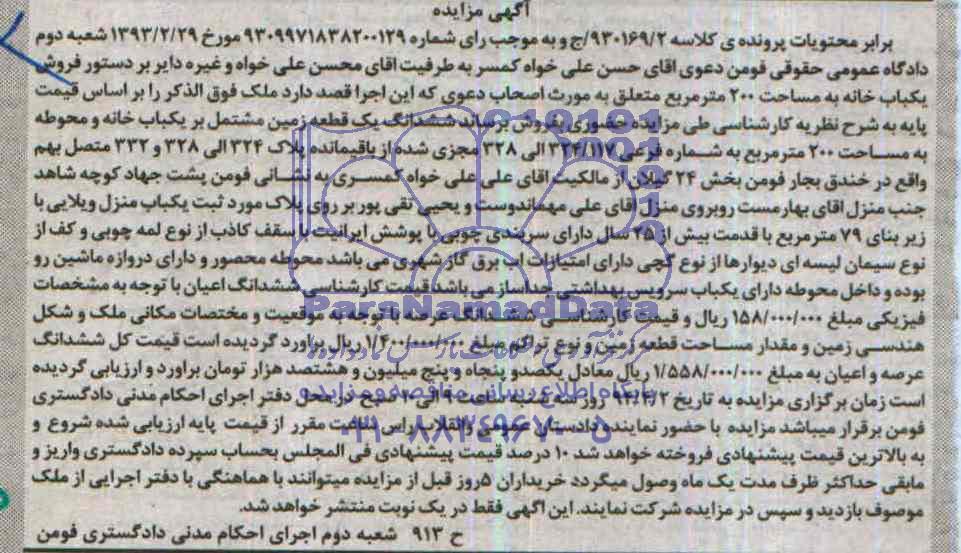 آگهی مزایده
برابر محتویات پرونده ی کلاسه ۹۳۰۱۶۹/۲/ج و به موجب رای شماره ۹۳۰۹۹۷۱۸۳۸۲۰۰۱۲۹ مورخ ۱۳۹۳/۲/۲۹ شعبه دوم
دادگاه عمومی حقوقی فومن دعوی اقای حسن علی خواه کمسر به طرفیت اقای محسن علی خواه و غیره دایر بر دستور فروش
یکباب خانه به مساحت ۲۰۰ مترمربع متعلق به مورث اصحاب دعوی که این اجرا قصد دارد ملک فوق الذکر را بر اساس قیمت
پایه به شرح نظریه کارشناسی طی مزایده حضوری بفروش برساند ششدانگ یک قطعه زمین مشتمل بر یکباب خانه و محوطه
به مساحت ۲۰۰ مترمربع به شماره فرعی ۳۲۴/۱۱۷ الی ۳۲۸ مجزی شده از باقیمانده پلاک ۳۲۴ الی ۳۲۸ و ۳۳۲ متصل بهم
واقع در خندق بجار فومن بخش ۲۴ گیلان از مالکیت اقای علی علی خواه کمسری به نشانی فومن پشت جهاد کوچه شاهد
جنب منزل اقای بهارمست روبروی منزل اقای علی مهماندوست و یحیی تقی پور بر روی پلاک مورد ثبت یکباب منزل ویلایی با
زیر بنای ۷۹ مترمربع با قدمت بیش از ۲۵ سال دارای سربندی چوبی با پوشش ایرانیت با سقف کاذب از نوع لمه چوبی و کف از
نوع سیمان لیسه ای دیوارها از نوع گچی دارای امتیازات اب برق گاز شهری می باشد محوطه محصور و دارای دروازه ماشین رو
بوده و داخل محوطه دارای یکباب سرویس بهداشتی جداساز می باشد قیمت کارشناسی ششدانگ اعیان با توجه به مشخصات
فیزیکی مبلغ ۱۵۸/۰۰۰/۰۰۰ ریال و قیمت کارشناسی ششدانگ عرصه با توجه به موقعیت و مختصات مکانی ملک و شکل
هندسی زمین و مقدار مساحت قطعه زمین و نوع تراکم مبلغ ۱/۴۰۰/۰۰۰/۰۰۰ ریال براورد گردیده است قیمت کل ششدانگ
عرصه و اعیان به مبلغ ۱/۵۵۸/۰۰۰/۰۰۰ ریال معادل یکصدو پنجاه و پنج میلیون و هشتصد هزار تومان براورد و ارزیابی گردیده
است زمان برگزاری مزایده به تاریخ روز سه شنبه ساعت ۹ الی ۱۰ صبح در محل دفتر اجرای احکام مدنی دادگستری
فومن برقرار میباشد مزایده با حضور نماینده دادستان عمومی وانقلاب راس ساعت مقرر از قیمت پایه ارزیابی شده شروع و
به بالاترین قیمت پیشنهادی فروخته خواهد شد ۱۰ درصد قیمت پیشنهادی فی المجلس بحساب سپرده دادگستری واریز و
مابقی حداکثر ظرف مدت یک ماه وصول میگردد خریداران ۵روز قبل از مزایده میتوانند با هماهنگی با دفتر اجرایی از ملک
موصوف بازدید و سپس در مزایده شرکت نمایند. این اگهی فقط در یک نوبت منتشر خواهد شد.
ح ۹۱۳ شعبه دوم اجرای احکام مدنی دادگستری فومن
ParaNamadData
پایگاه اطلاع رسانی مناقصه و مزایده
۰۲۱-۸۸۳۴۹۶۷۰-۵